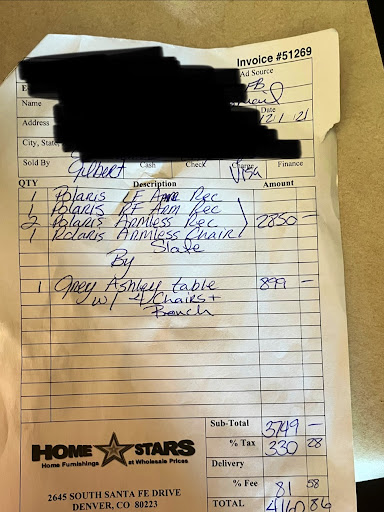 Invoice #51269
Ad Source
FB
Name
Date
Address
12 1 21
City, State
Sold By
Gilbert
Cash
Check
Charge
Visa
Finance
QTY
Description
Amount
1 Polaris LF Arm Rec
1 Polaris RF Arm Rec
2 Polaris Armless Rec 2850 —
1 Polaris Armless Chair
Slate
By
1 Grey Ashley table 899 —
w/ 4 Chairs +
Bench
Sub-Total 3749 —
% Tax 330 28
Delivery
% Fee 81 58
TOTAL 4160 86
HOME STARS
Home Furnishings at Wholesale Prices
2645 SOUTH SANTA FE DRIVE
DENVER, CO 80223